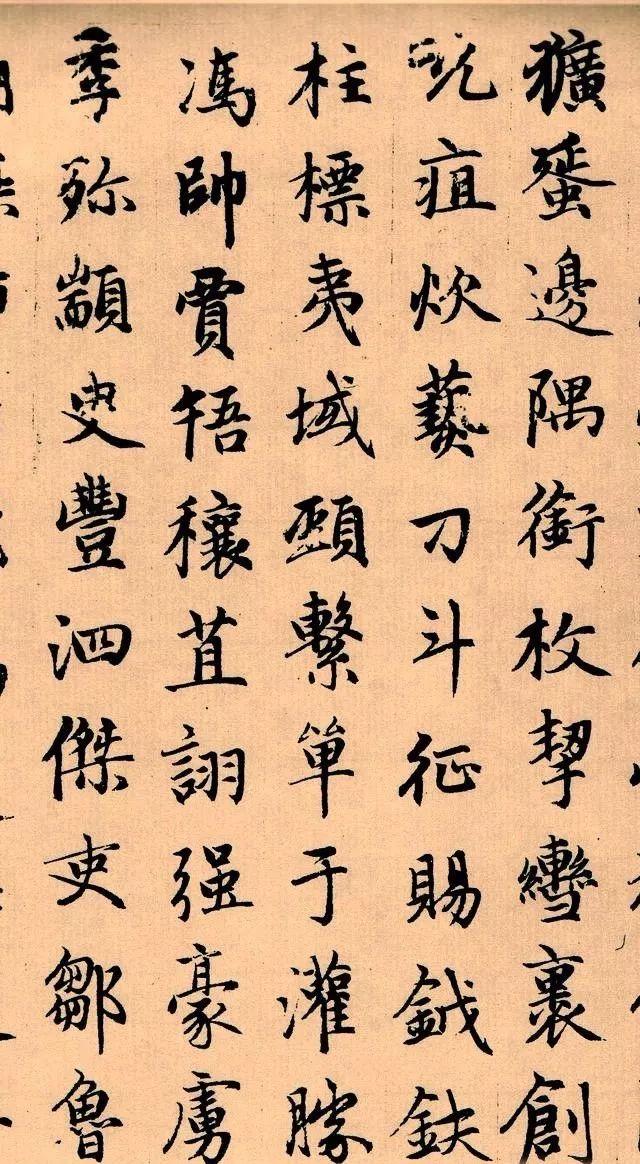 獷蜑邊隅銜枚挈轡裹創
吮疽炊爇刀斗征賜鉞鈇
柱標夷域頸繫單于灌滕
馮帥賈牾穰苴詡强豪虜
季殄顓臾豐泗傑吏鄒魯